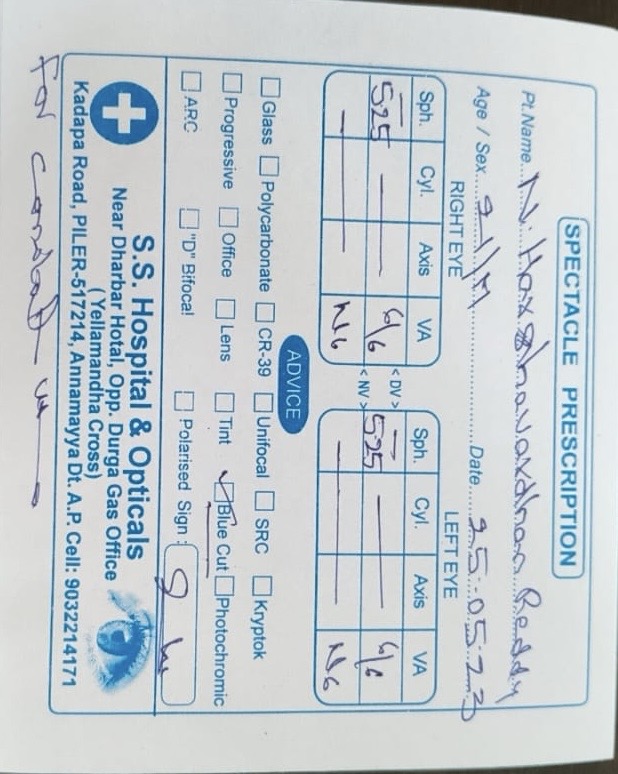 SPECTACLE PRESCRIPTION
Pt.Name...N. Harshavardhan Reddy
Age / Sex...21/M...Date...25-05-23
RIGHT EYE LEFT EYE
Sph. Cyl. Axis VA Sph. Cyl. Axis VA
- 5.25 — — 6/6 < DV > - 5.25 — — 6/6
— — — N6 < NV > — — — N6
ADVICE
Glass Polycarbonate CR-39 Unifocal SRC Kryptok
Progressive Office Lens Tint ✓ Blue Cut Photochromic
ARC "D" Bifocal Polarised Sign :
S.S. Hospital & Opticals
Near Dharbar Hotal, Opp. Durga Gas Office
( Yellamandha Cross)
Kadapa Road, PILER-517214, Annamayya Dt. A.P. Cell: 9032214171
For Constant